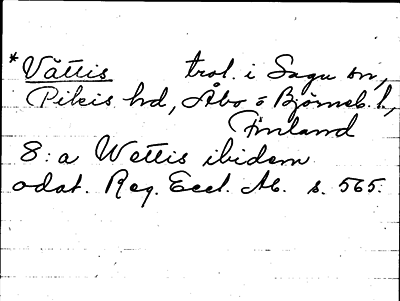 *Vättis trol. i Sagu sn,
Pikis hd, Åbo o Björneb. l,
Finland
8: a Wettis ibidem
odat. Reg. Eccl. Ab. s. 565.